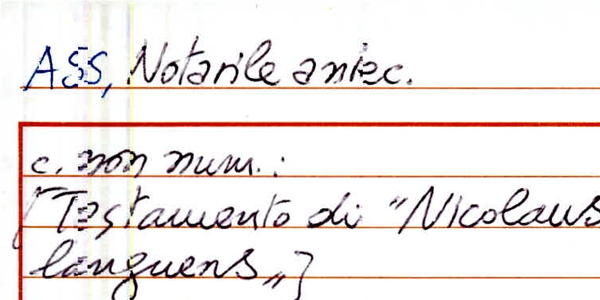 ASS, Notarile antec.
c. non num.:
[Testamento di "Nicolaus
languens"]